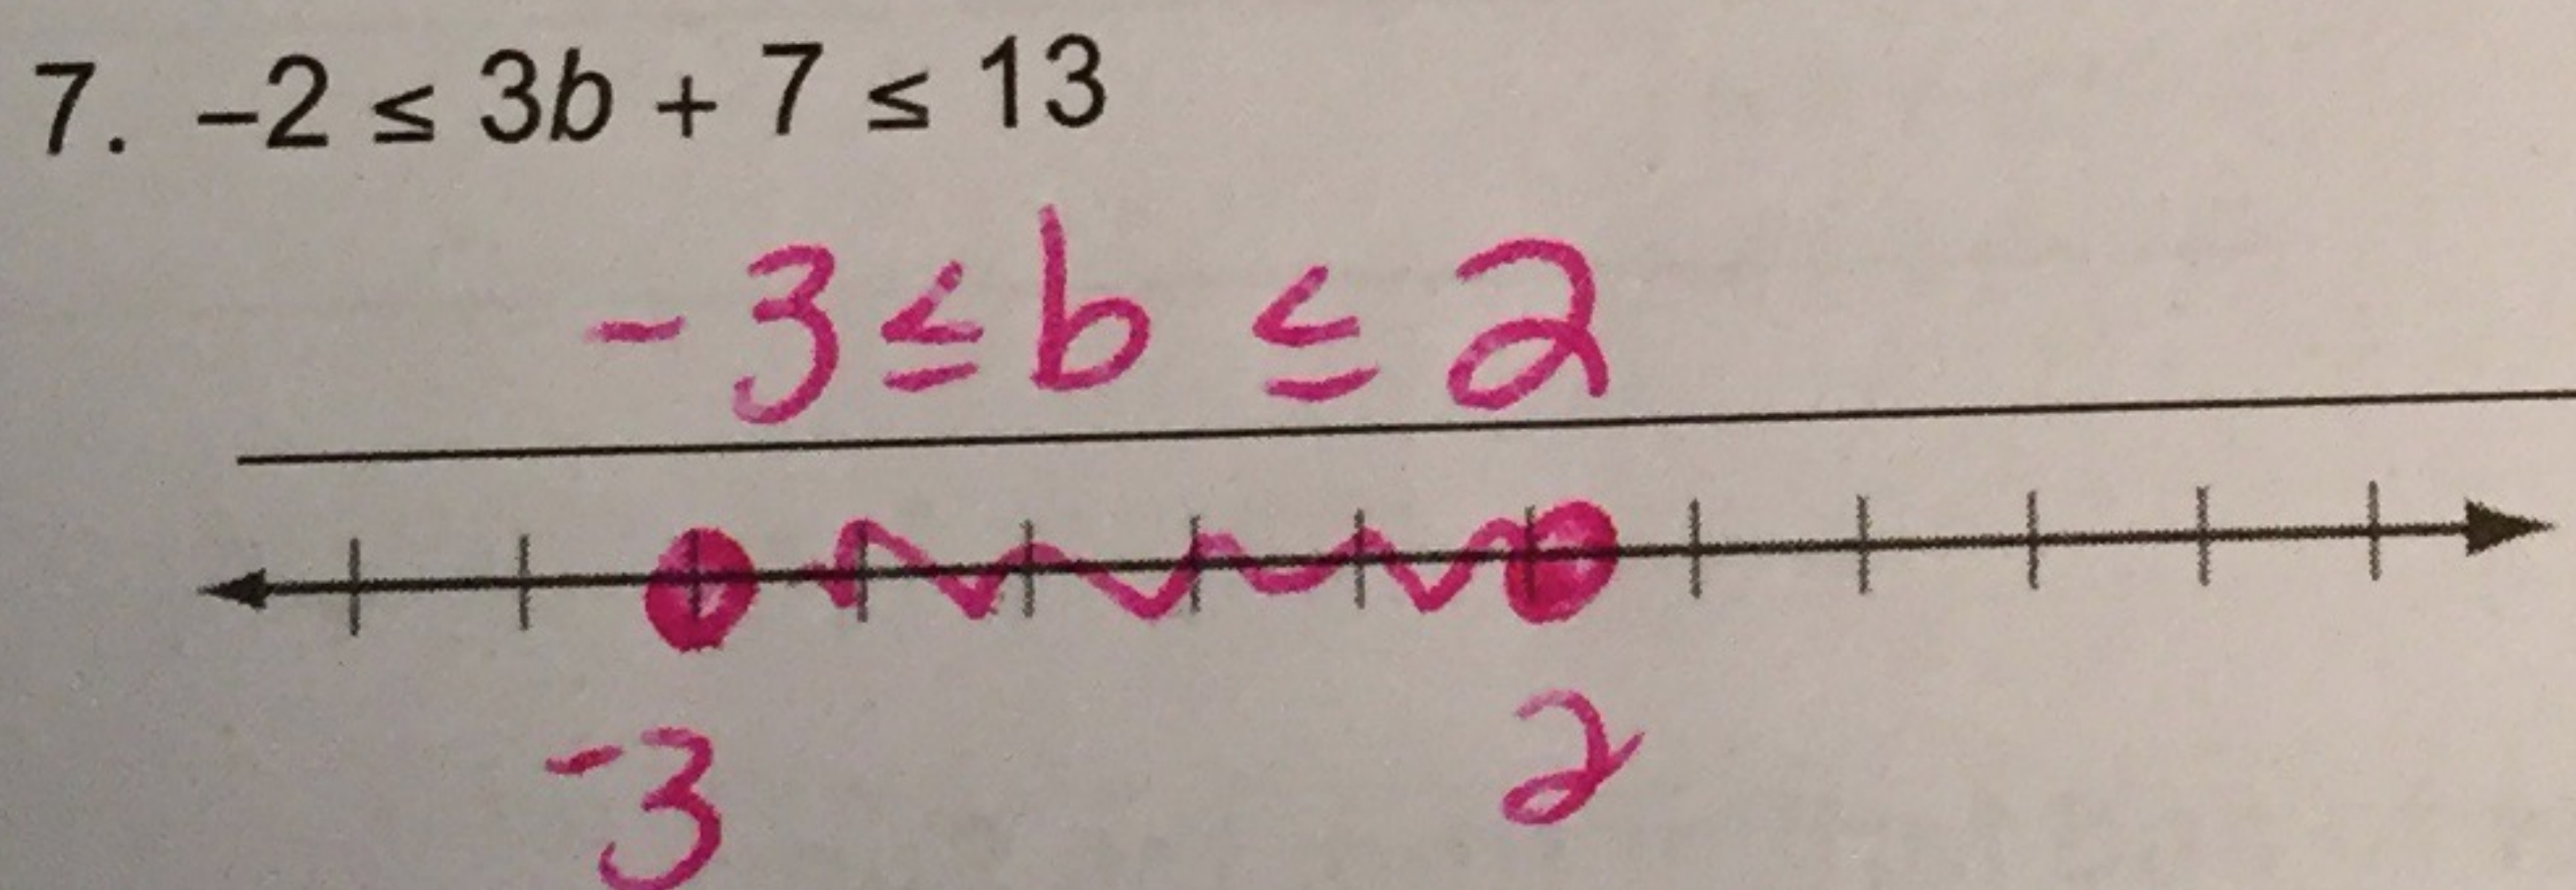 7. –2 ≤ 3b + 7 ≤ 13
-3 ≤ b ≤ 2
-3 2